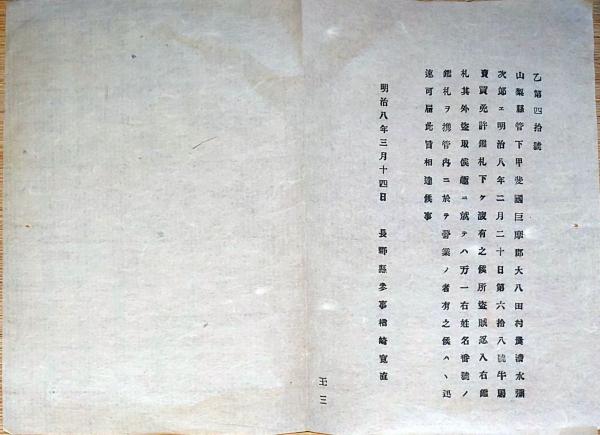 乙第四拾號
山梨縣管下甲斐國巨摩郡大八田村農清水彌
次郎ェ明治八年二月二十日第六拾八號牛馬
賣買免許鑑札下ケ渡有之候所盗賊忍入右鑑
札其外盗取候趣ニ就テハ万一右姓名番號ノ
鑑札ヲ携管内ニ於テ營業ノ者有之候ハヽ迅
速可届此旨相達候事
明治八年三月十四日 長野縣參事楢崎寛直
王三